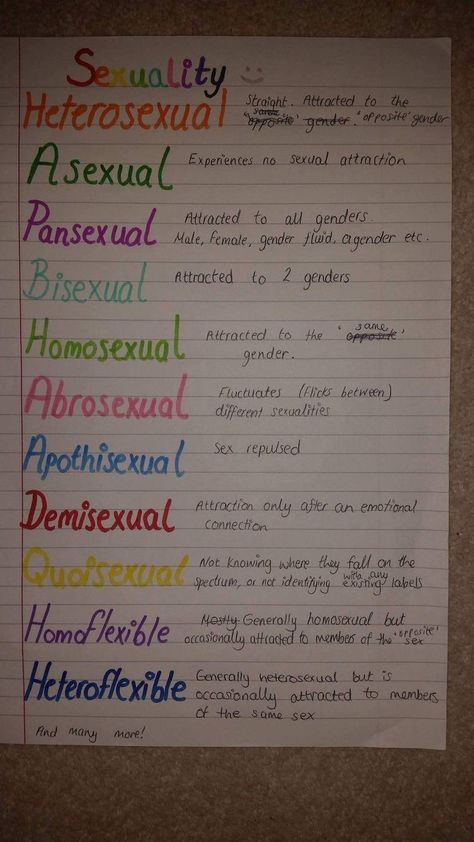 Sexuality
Heterosexual
Straight. Attracted to the
'same opposite' gender. 'opposite' gender
Asexual
Experiences no sexual attraction
Pansexual
Attracted to all genders
Male, Female, gender fluid, agender etc.
Bisexual
Attracted to 2 genders
Homosexual
Attracted to the 'same opposite'
gender.
Abrosexual
Fluctuates (flicks between)
different sexualities
Apothisexual
Sex repulsed
Demisexual
Attraction only after an emotional
connection
Quoisexual
Not knowing where they fall on the
spectrum, or not identifying with any existing labels
Homoflexible
Mostly Generally homosexual but
occasionally attracted to member of the 'opposite' sex
Heteroflexible
Generally heterosexual but is
occasionally attracted to members
of the same sex
And many more!